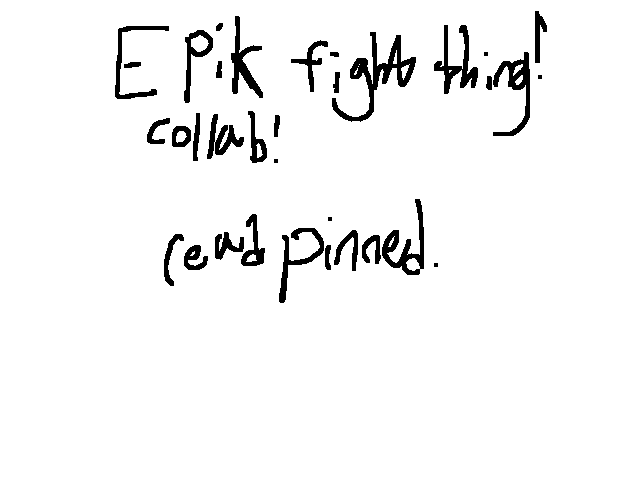 E Pik fight thing!
collab!
read pinned.